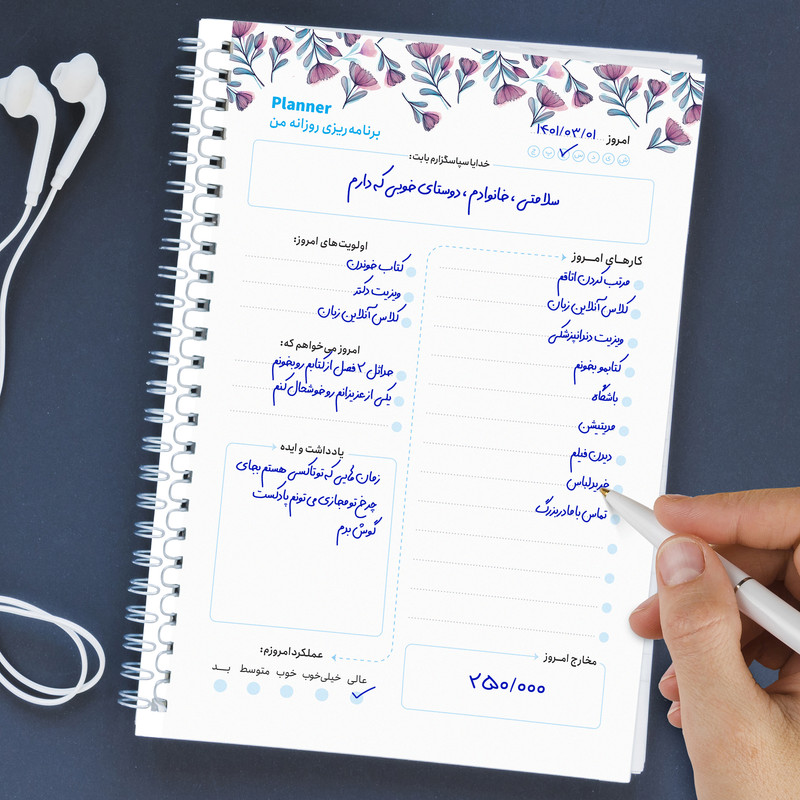 Planner
برنامه‌ریزی روزانه من
امروز ۱۴۰۱/۰۳/۰۱
ش ی د س چ پ ج
خدایا سپاسگزارم بابت:
سلامتی، خانوادم، دوستای خوبی که دارم
کارهای امروز
مرتب کردن اتاقم
کلاس آنلاین زبان
ویزیت دندانپزشکی
کتابمو بخونم
باشگاه
مدیتیشن
دیدن فیلم
خرید لباس
تماس با مادربزرگ
اولویت‌های امروز:
کتاب خوندن
ویزیت دکتر
کلاس آنلاین زبان
امروز می‌خواهم که:
حداقل ۲ فصل از کتابم رو بخونم
یکی از عزیزانم رو خوشحال کنم
یادداشت و ایده
زمان هایی که تو تاکسی هستم بجای
چرخ تو مجازی می تونم پادکست
گوش بدم
عملکرد امروزم:
عالی خیلی‌خوب خوب متوسط بد
مخارج امروز
۲۵۰/۰۰۰